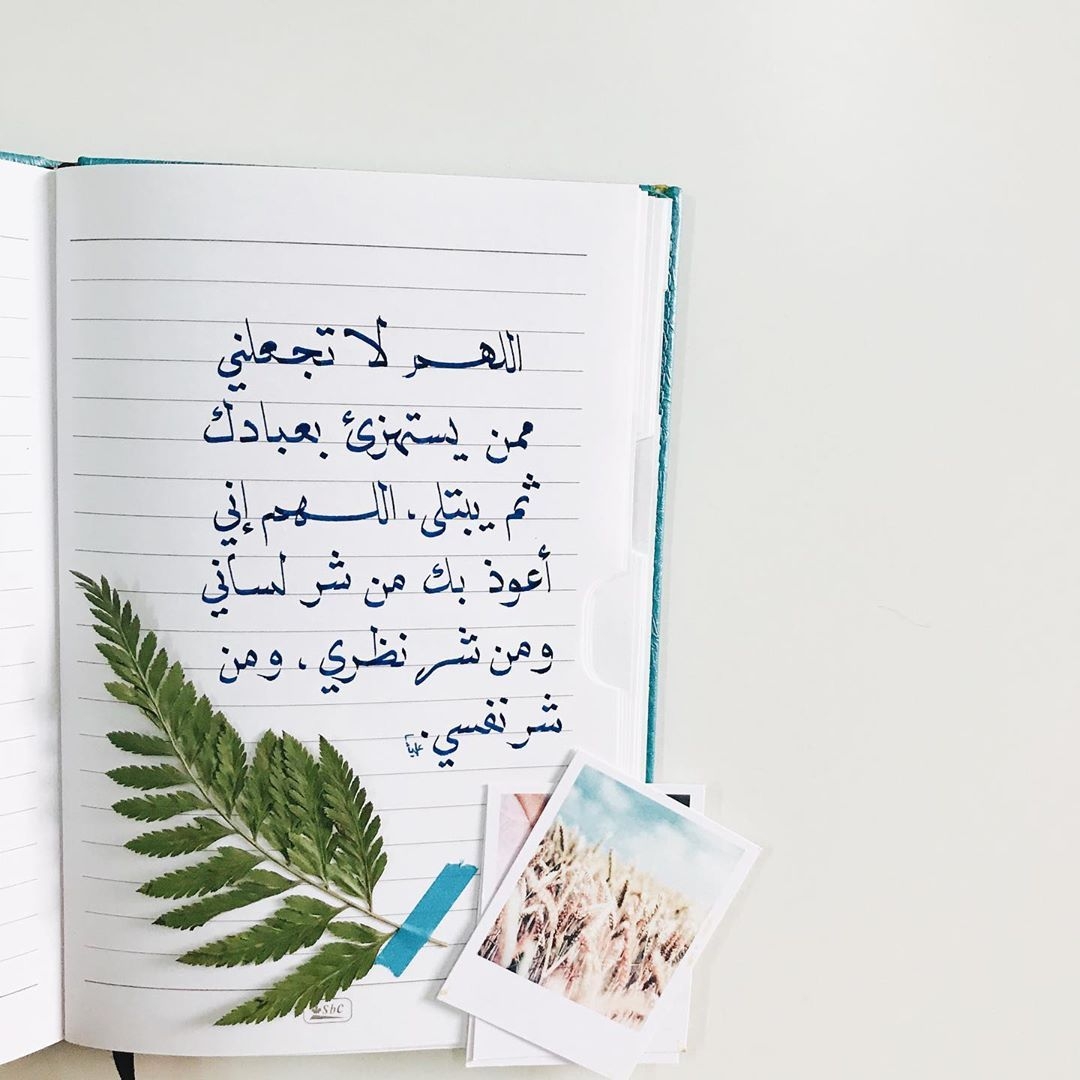 اللهم لا تجعلني
ممن يستهزئ بعبادك
ثم يبتلى. اللهم إني
أعوذ بك من شر لساني
ومن شر نظري. ومن
شر نفسي.
SbC